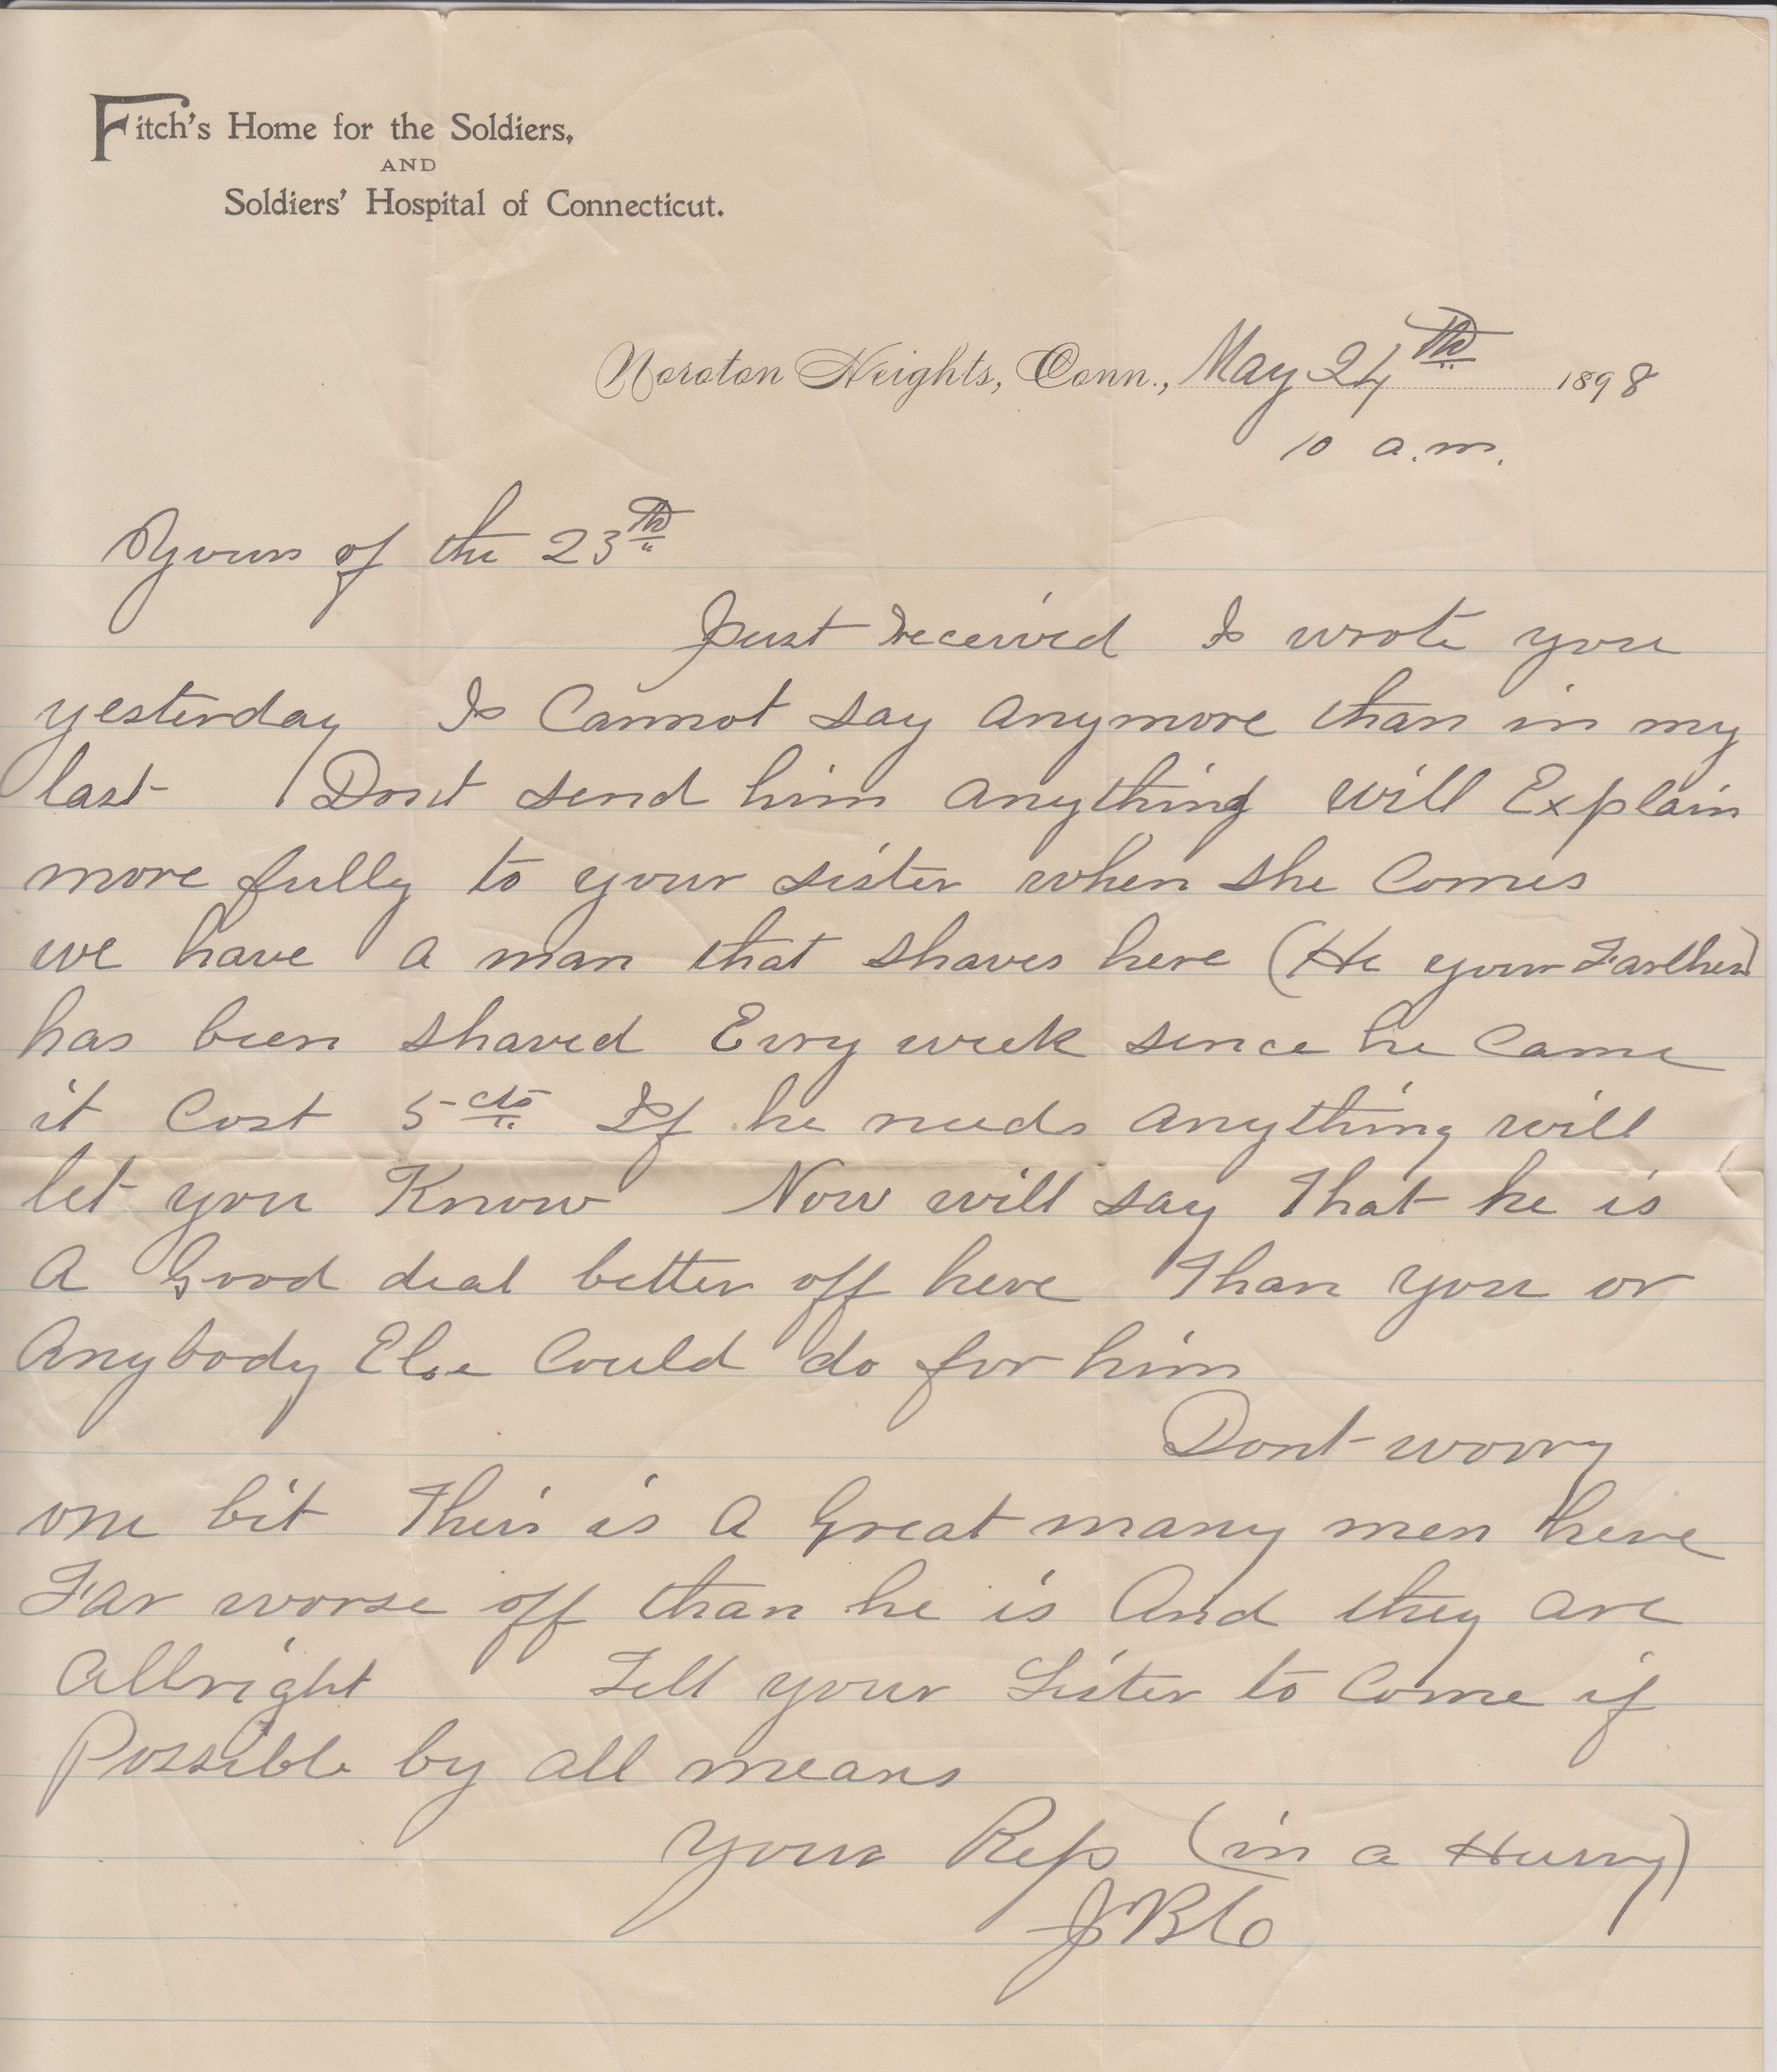 Fitch's Home for the Soldiers,
AND
Soldiers' Hospital of Connecticut.
Noroton Heights, Conn., May 24th 1898
10 a.m.
Yours of the 23th
Just received I wrote you
yesterday I Cannot say anymore than in my
last Dont send him anything will Explain
more fully to your sister when she Comes
we have a man that shaves here (He your Farther)
has been shaved Evry week since he Came
it Cost 5 cts If he needs anything will
let you Know Now will say That he is
A Good deal better off here Than you or
Anybody Else Could do for him
Dont worry
one bit Their is A Great many men here
Far worse off than he is And they are
Allright Tell your Sister to Come if
Possible by all means
Yours Resp (in a Hurry)